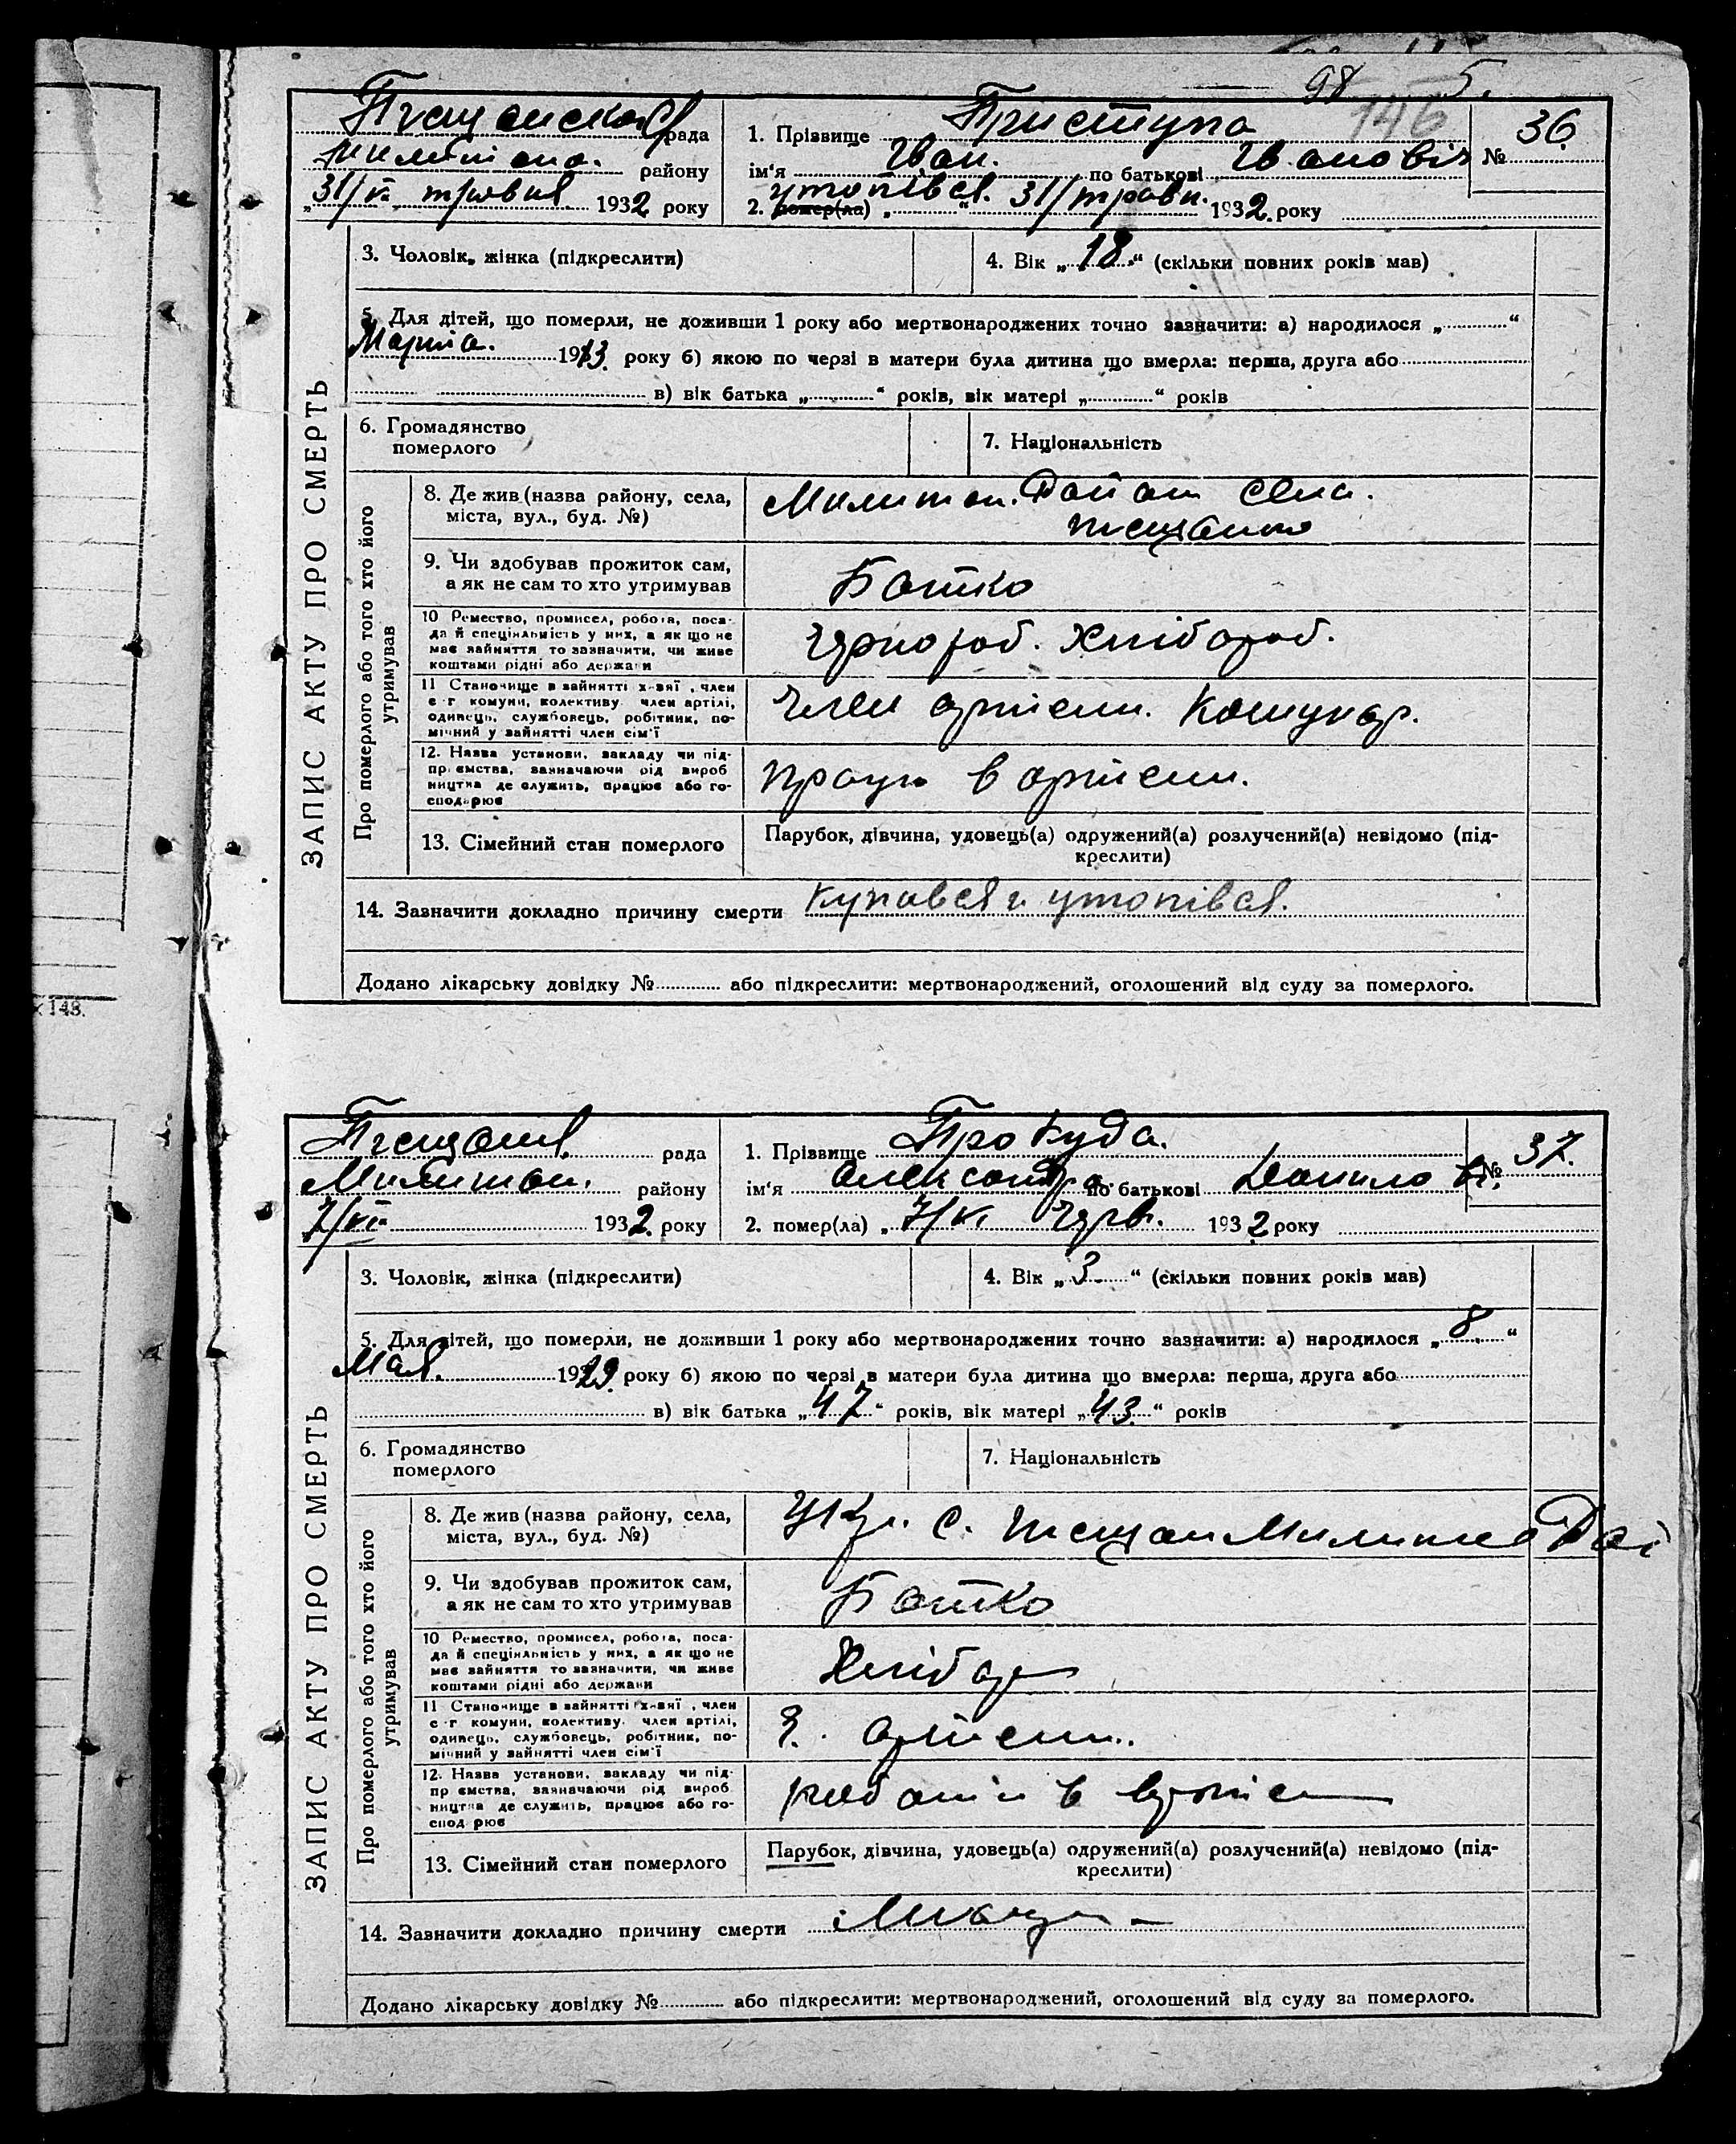 98 5.
146
Пісщанська рада
Милитопо. району
"31/V. травня 1932 року
1. Прізвище Приступа
ім'я Іван. по батькові Івановіч
2. помер(ла) утопівся. "31/травн. 1932. року
№ 36.
3. Чоловік, жінка (підкреслити)
4. Вік „18“ (скільки повних років мав)
5. Для дітей, що померли, не доживши 1 року або мертвонароджених точно зазначити: а) народилося „ “
Марта. 1913. року б) якою по черзі в матери була дитина що вмерла: перша, друга або
в) вік батька „ “ років, вік матері „ “ років
6. Громадянство
померлого
7. Національність
ЗАПИС АКТУ ПРО СМЕРТЬ
Про померлого або того хто його
утримував
8. Де жив (назва району, села,
міста, вул., буд. №)
Милитоп. Район села.
9. Чи здобував прожиток сам,
а як не сам то хто утримував
Батко
10 Ремество, промисел, робота, поса-
да й спеціяльність у них, а як що не
має зайняття то зазначити, чи живе
коштами рідні або держави
Чярнороб. Хлібороб.
11 Становище в зайнятті х-вяї, член
с-г комуни, колективу член артілі,
одинець, службовець, робітник, по-
мічний у зайнятті член сім'ї
Член артели.
12. Назва установи, закладу чи під-
приємства, зазначаючи рід вироб
ництва де служить, працює або го-
сподарює
працю в артели.
13. Сімейний стан померлого
Парубок, дівчина, удовець(а) одружений(а) розлучений(а) невідомо (під-
креслити)
14. Зазначити докладно причину смерти купався и утопівся.
Додано лікарську довідку № або підкреслити: мертвонароджений, оголошений від суду за померлого.
148.
Пісщанс. рада
Милитоп. району
7/VI 1932. року
1. Прізвище Прокуда.
ім'я Александра по батькові Данилов.
2. помер(ла) „7/VI Чярв. 1932 року
№ 37.
3. Чоловік, жінка (підкреслити)
4. Вік „3“ (скільки повних років мав)
5. Для дітей, що померли, не доживши 1 року або мертвонароджених точно зазначити: а) народилося „8“
Мая. 1929. року б) якою по черзі в матери була дитина що вмерла: перша, друга або
в) вік батька „47“ років, вік матері „43.“ років
6. Громадянство
померлого
7. Національність
ЗАПИС АКТУ ПРО СМЕРТЬ
Про померлого або того хто його
утримував
8. Де жив (назва району, села,
міста, вул., буд. №)
Укр. с. Пісщан Милито Рай
9. Чи здобував прожиток сам,
а як не сам то хто утримував
Батко
10 Ремество, промисел, робота, поса-
да й спеціяльність у них, а як що не
має зайняття то зазначити, чи живе
коштами рідні або держави
Хлібор
11 Становище в зайнятті х-вяї, член
с-г комуни, колективу член артілі,
одинець, службовець, робітник, по-
мічний у зайнятті член сім'ї
Ч. артели.
12. Назва установи, закладу чи під-
приємства, зазначаючи рід вироб
ництва де служить, працює або го-
сподарює
13. Сімейний стан померлого
Парубок, дівчина, удовець(а) одружений(а) розлучений(а) невідомо (під-
креслити)
14. Зазначити докладно причину смерти
Додано лікарську довідку № або підкреслити: мертвонароджений, оголошений від суду за померлого.